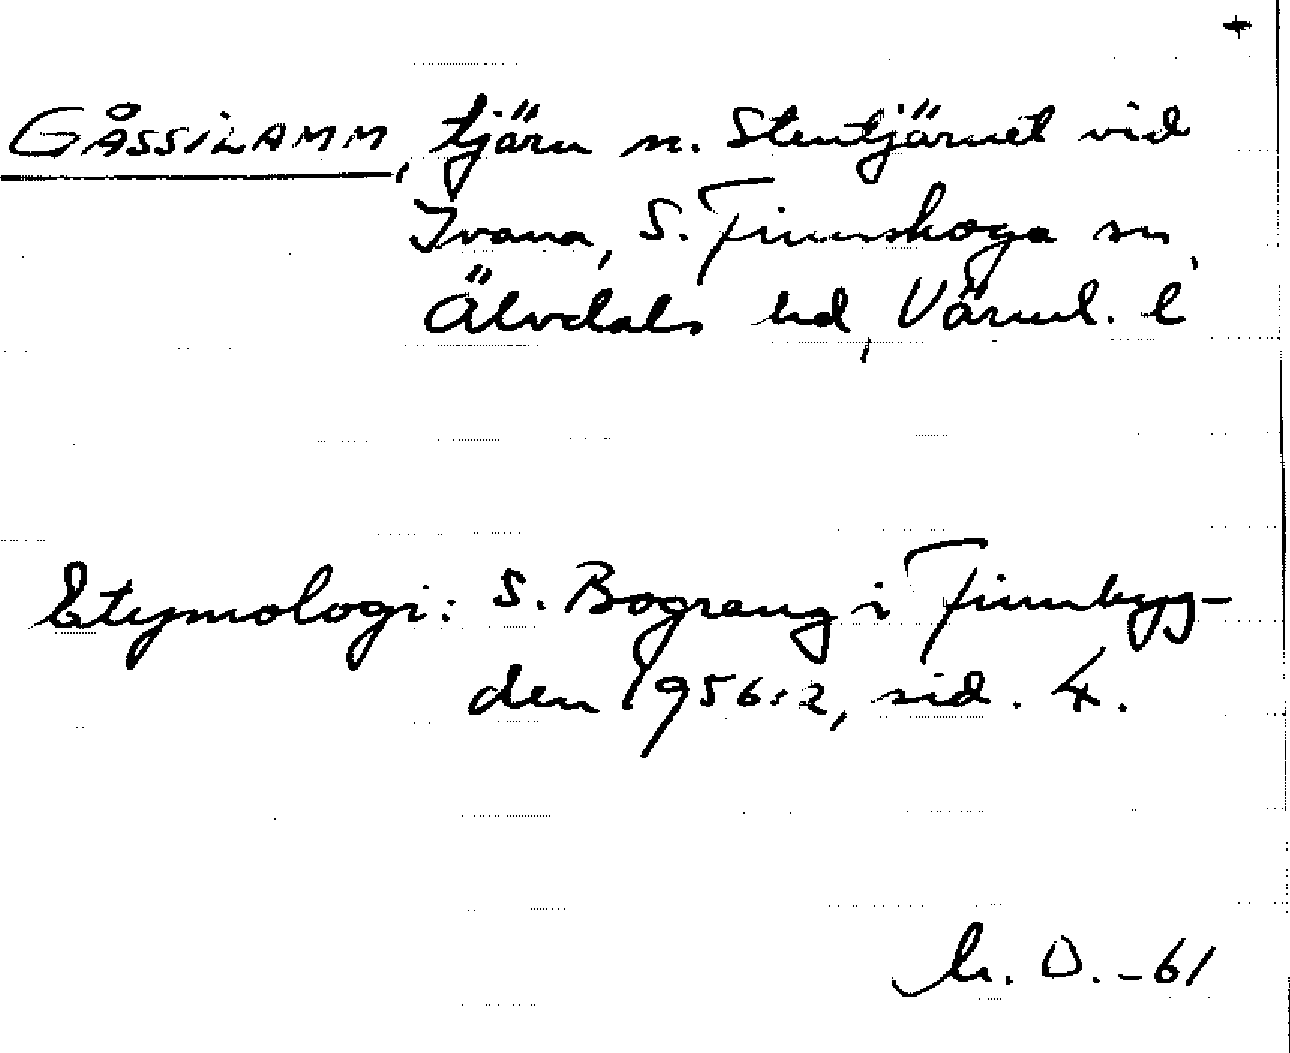 +
GÅSSILAMM, tjärn n. Stentjärnet vid
Ivana, S. Finnskoga sn,
Älvdals hd, Värml. l
Etymologi: S. Bograng i Finnbyg-
den 1956:2, sid. 4.
D. -61